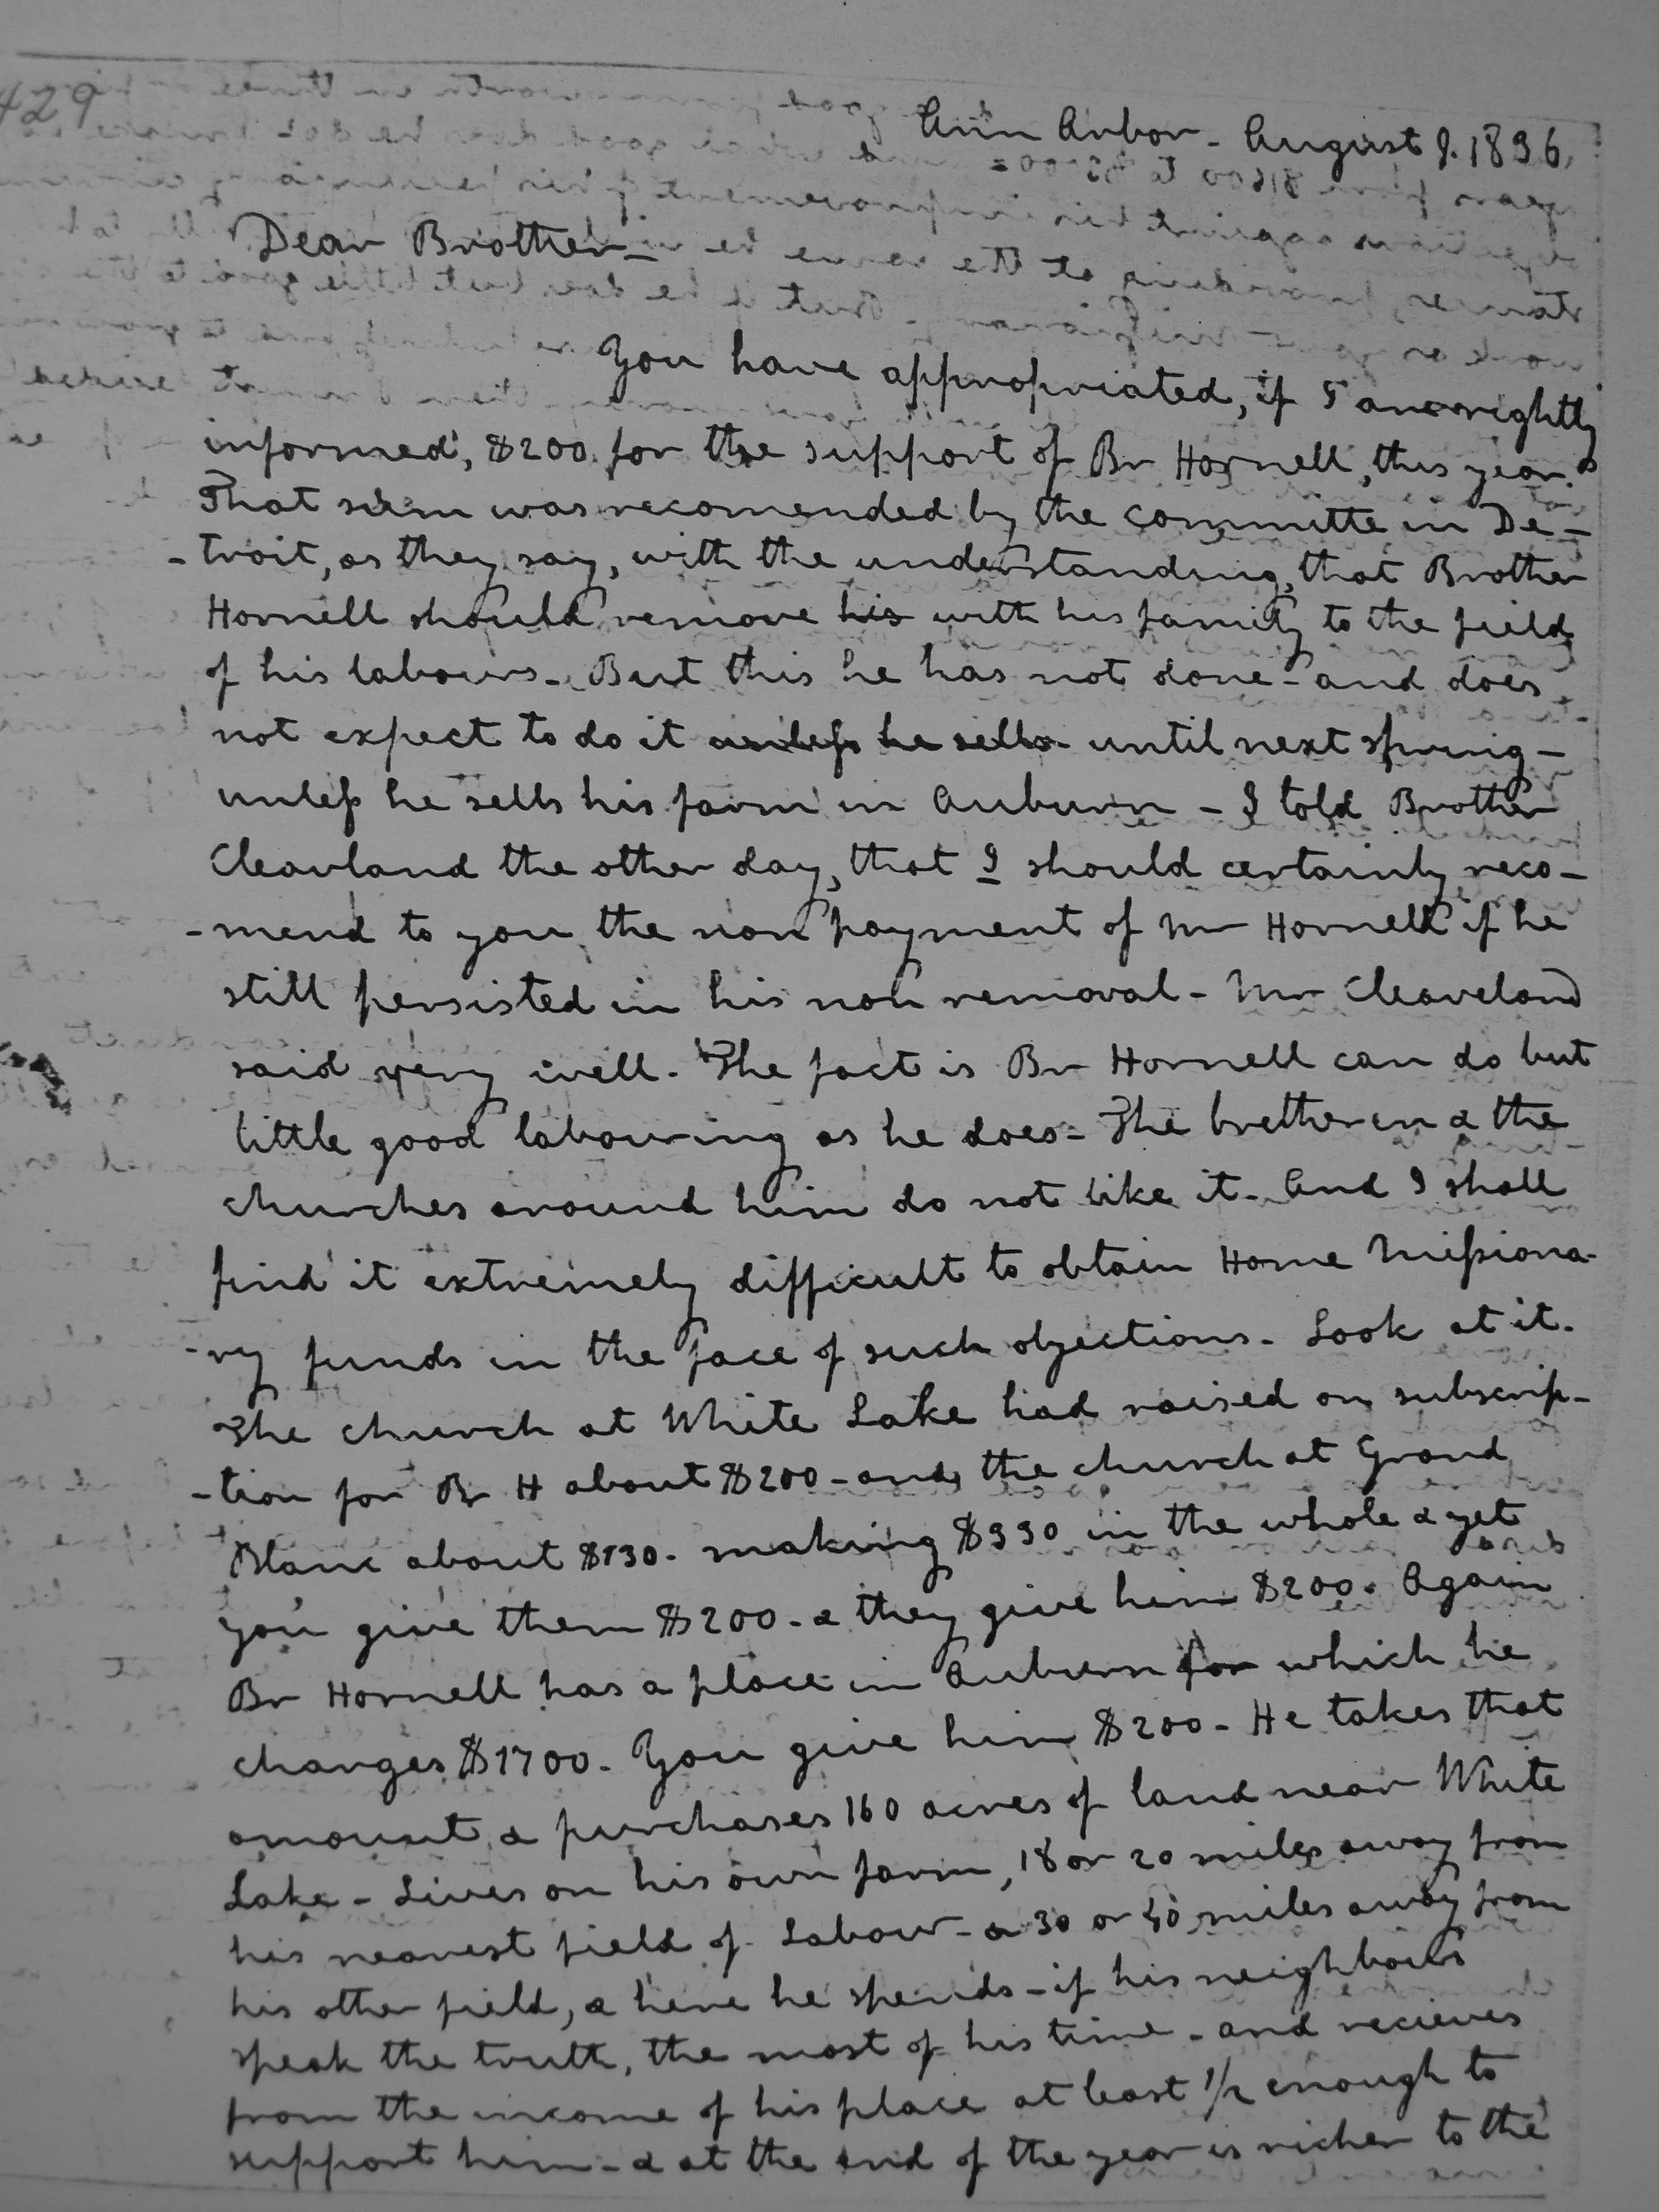 429
Ann Arbor - August 9. 1836.
Dear Brother -
You have appropriated, if I am rightly
informed, $200. for the support of Br Hornell, this year.
That sum was recomended by the committe in De-
-troit, as they say, with the understanding, that Brother
Hornell should remove his with his family to the field
of his labours - But this he has not done - and does
not expect to do it unless he sells - until next spring -
unless he sells his farm in Auburn - I told Brother
Cleavland the other day, that I should certainly reco-
-mend to you the non payment of Mr Hornell if he
still persisted in his non removal - Mr Cleaveland
said very well. The fact is Br Hornell can do but
little good labouring as he does - The bretheren & the
churches around him do not like it - And I shall
find it extremely difficult to obtain Home Missiona-
-ry funds in the face of such objections - Look at it.
The church at White Lake had raised on subscrip-
-tion for Br H about $200 - and the church at Grand
Blanc about $130 - making $330 in the whole & yet
you give them $200 - & they give him $200. Again
Br Hornell has a place in Auburn for which he
charges $1700. You give him $200 - He takes that
amount & purchases 160 acres of land near White
Lake - Lives on his own farm, 18 or 20 miles away from
his nearest field of Labour - & 30 or 40 miles away from
his other field, & here he spends - if his neighbours
speak the truth, the most of his time - and recieves
from the income of his place at least 1/2 enough to
support him - & at the end of the year is richer to the